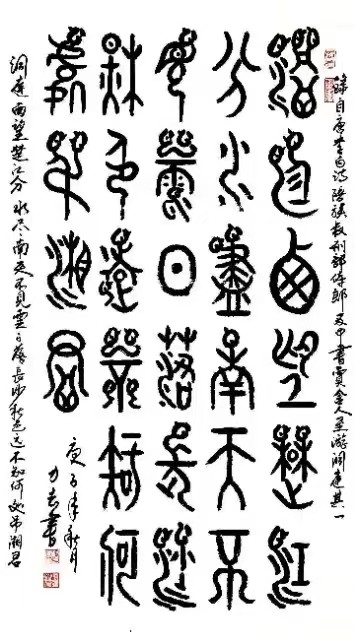 錄自唐李白詩陪族叔刑部侍郎及中書賈舍人至游洞庭其一
洞庭西望楚江
分水盡南天不
見雲日落長沙
秌色遠不知何
處弔湘君
庚子年秋月
書
洞庭西望楚江分水尽南天不見雲日落長沙秋色遠不知何処弔湘君